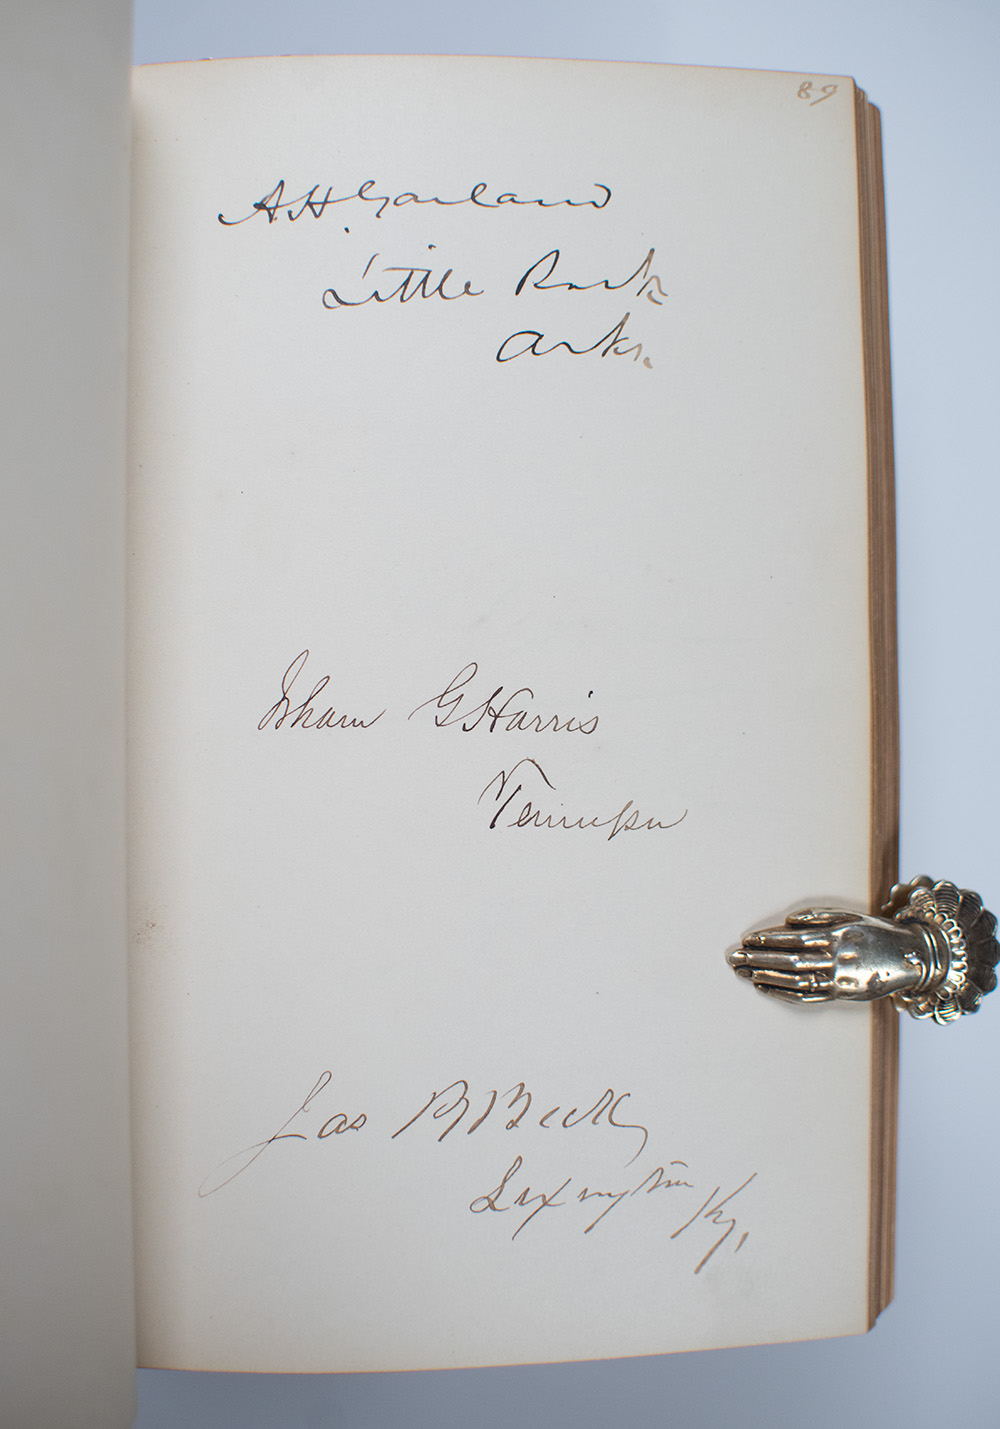 89
A. H. Garland
Little Rock
Arks.
Isham G Harris
Tennessee
Jas B Beck
Lexington Ky.